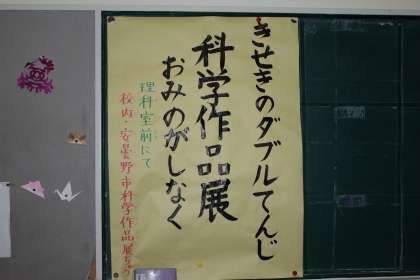 きせきのダブルてんじ
科学作品展
おみのがしなく
理科室前にて
校内・安曇野市科学作品展より